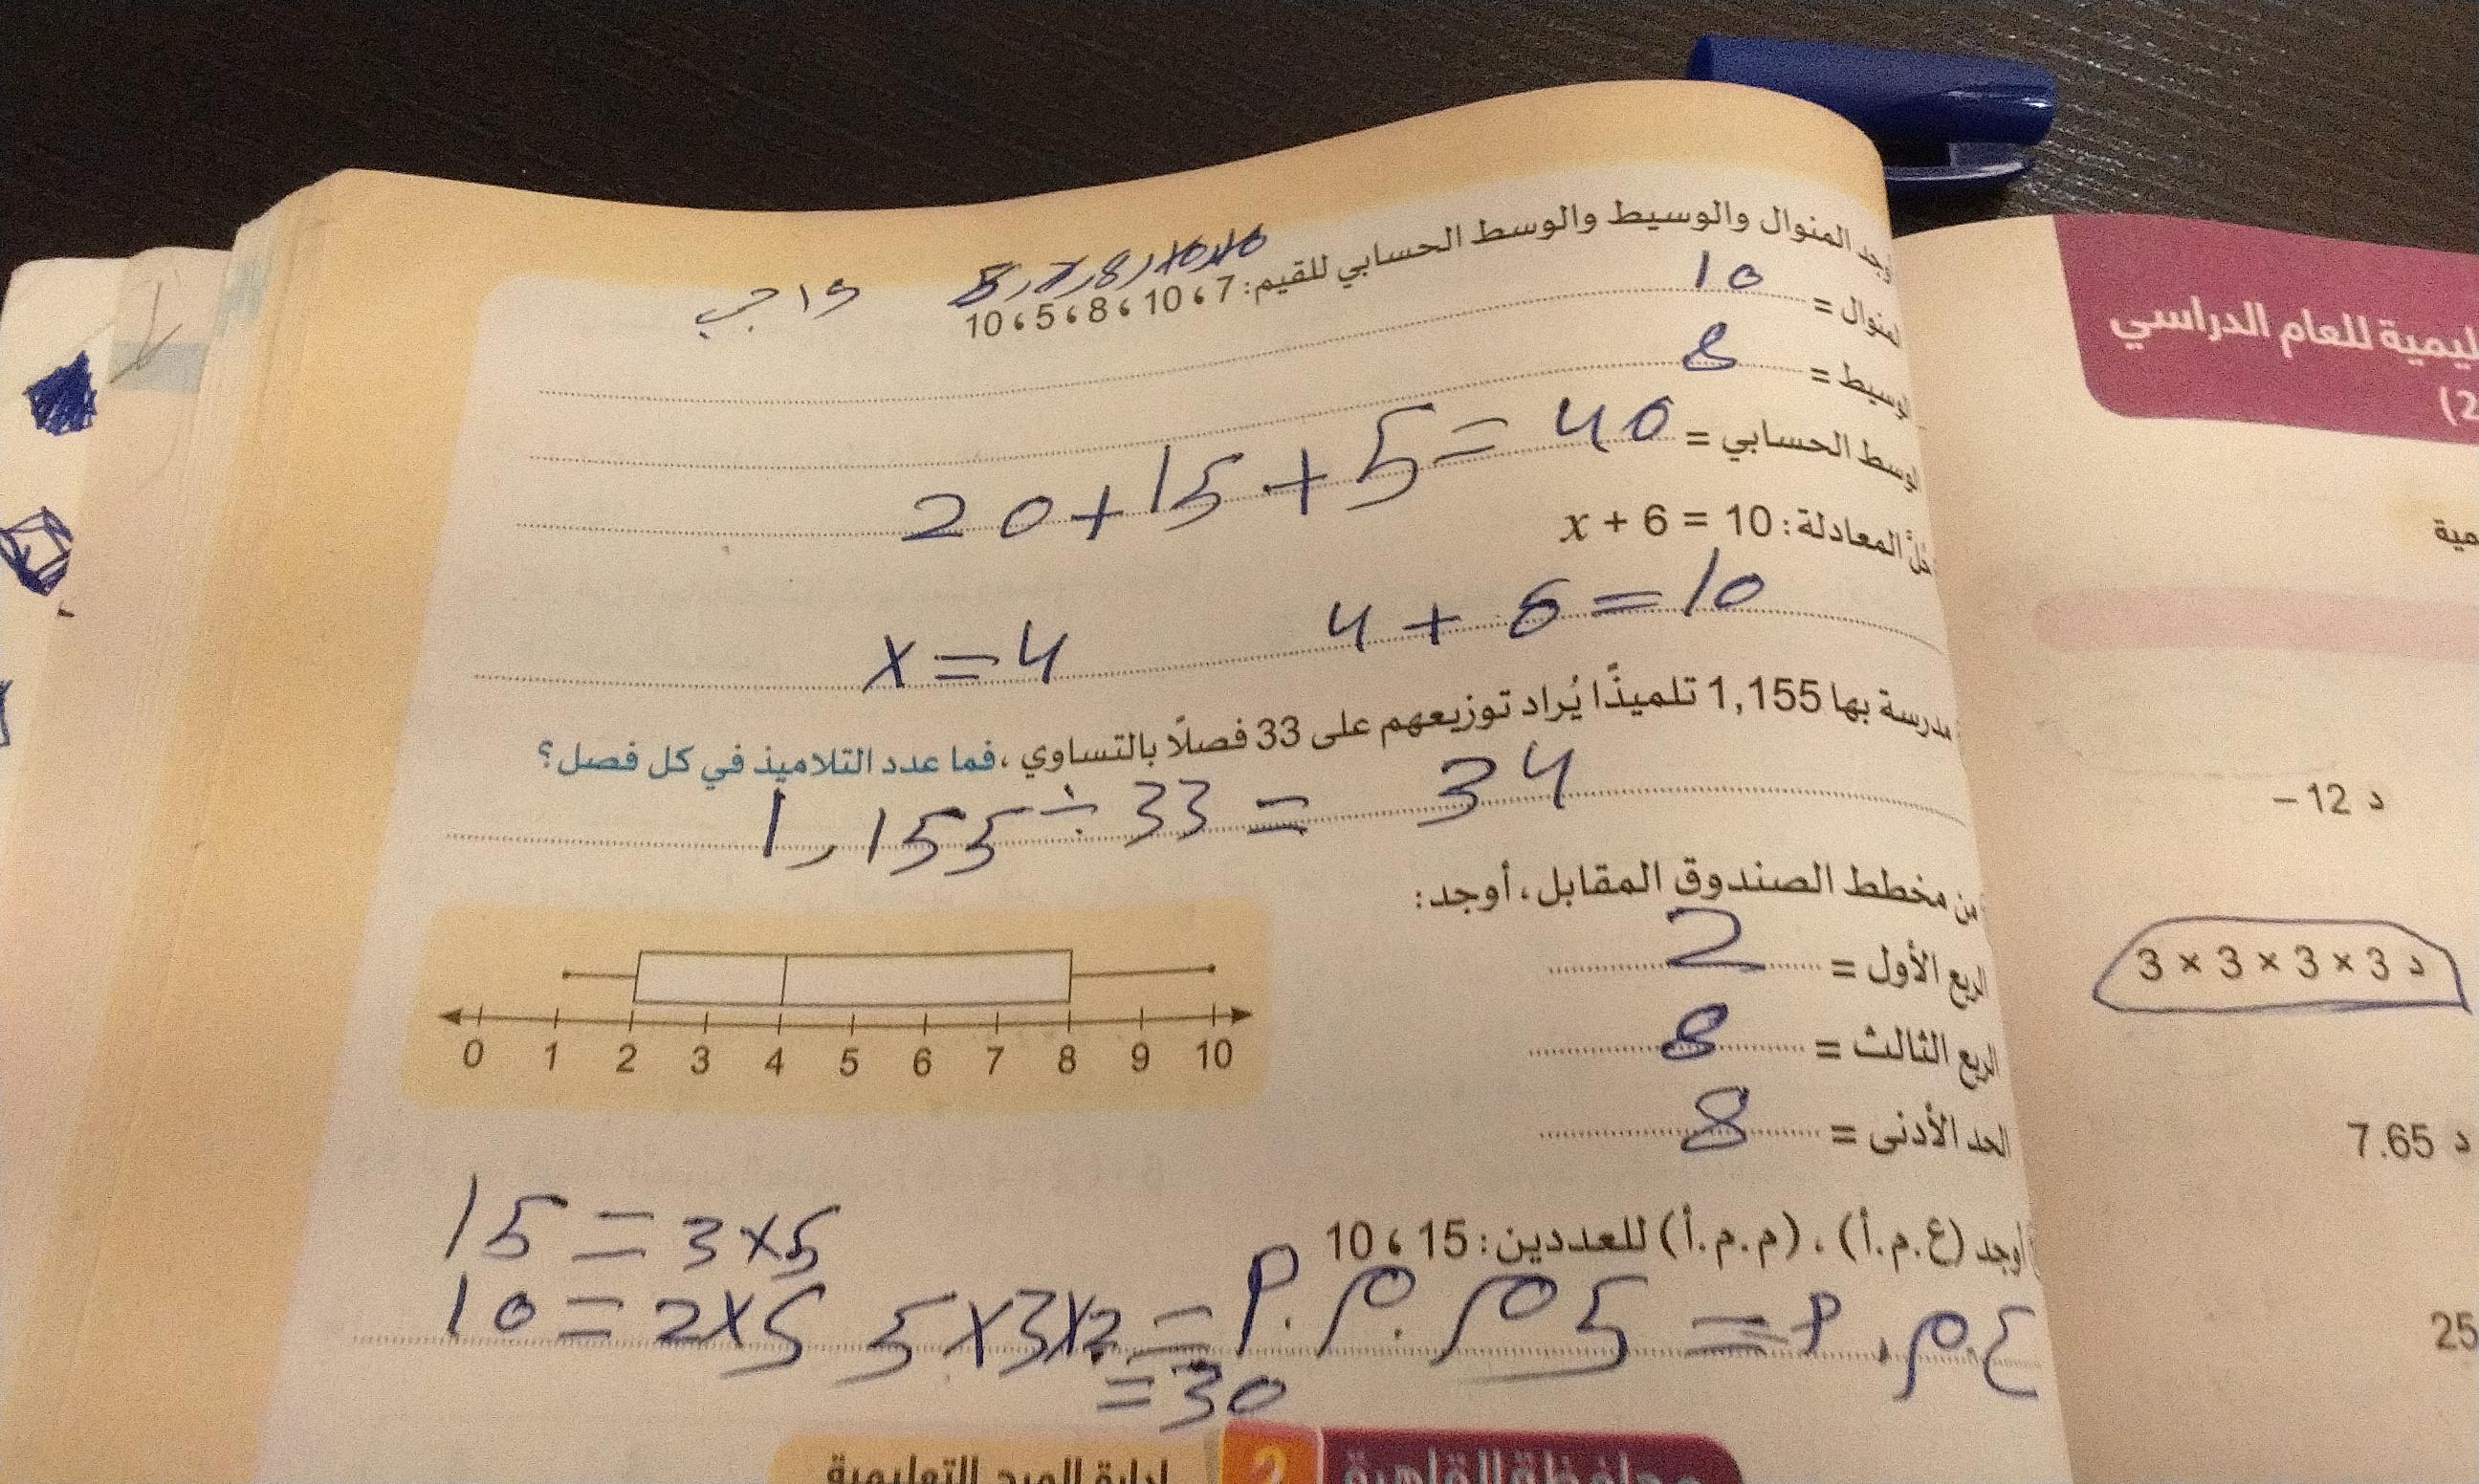 وجد المنوال والوسيط والوسط الحسابي للقيم: 7، 10، 8، 5، 10
5, 7, 8, 10, 10
واجب
المنوال = 10
الوسيط = 8
الوسط الحسابي = 40
20 + 15 + 5 =
حل المعادلة: x + 6 = 10
4 + 6 = 10
x = 4
مدرسة بها 1,155 تلميذًا يُراد توزيعهم على 33 فصلًا بالتساوي، فما عدد التلاميذ في كل فصل؟
1,155 ÷ 33 = 34
من مخطط الصندوق المقابل، أوجد:
الربع الأول = 2
الربع الثالث = 8
الحد الأدنى = 8
0 1 2 3 4 5 6 7 8 9 10
أوجد (ع.م.أ)، (م.م.أ) للعددين: 15، 10
15 = 3 × 5
10 = 2 × 5
ع.م.أ = 5
م.م.أ = 5 × 3 × 2
= 30
2 محافظة القاهرة
إدارة المرج التعليمية
ليمية للعام الدراسي
2)
مية
د 12 –
د 3 × 3 × 3 × 3
د 7.65
25